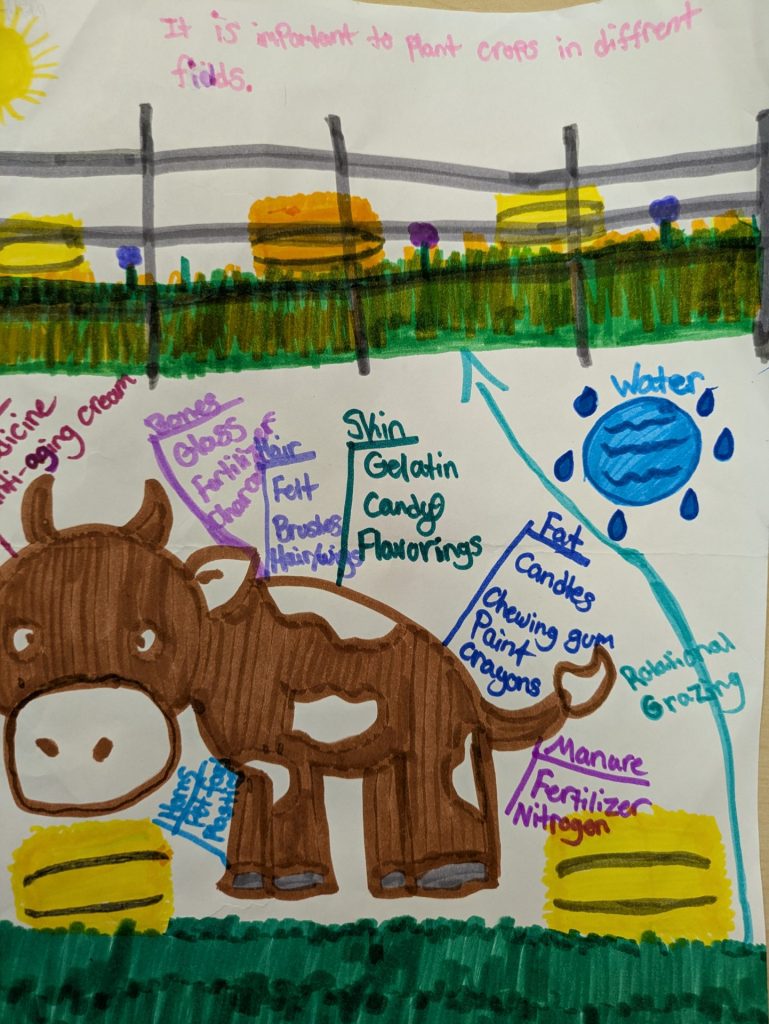 It is important to plant crops in diffrent
fields.
anti-aging cream
Bones
Glass
Fertilizer
Hair
Felt
Brushes
Hair/wigs
Skin
Gelatin
Candy
Flavorings
Water
Fat
Candles
Chewing gum
Paint
crayons
Rotational
Grazing
Manure
Fertilizer
Nitrogen